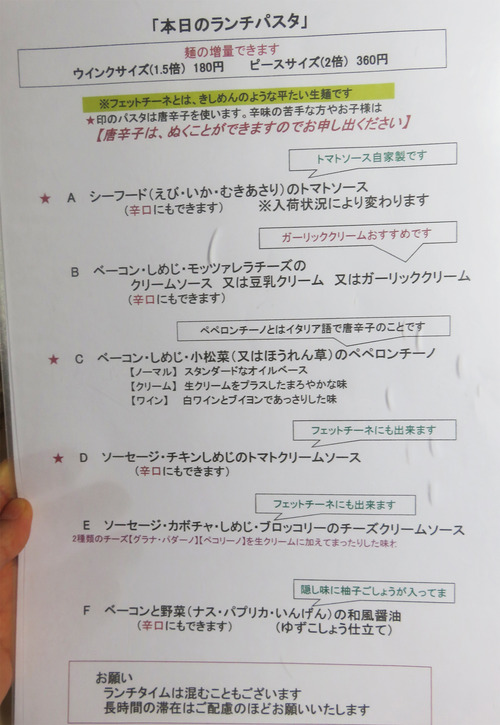 「本日のランチパスタ」
麺の増量できます
ウインクサイズ(1.5倍) 180円　ピースサイズ(2倍) 360円
※フェットチーネとは、きしめんのような平たい生麺です
★印のパスタは唐辛子を使います。辛味の苦手な方やお子様は
【唐辛子は、ぬくことができますのでお申し出ください】
トマトソース自家製です
★ A シーフード(えび・いか・むきあさり)のトマトソース
(辛口にもできます)　※入荷状況により変わります
ガーリッククリームおすすめです
B ベーコン・しめじ・モッツァレラチーズの
クリームソース 又は豆乳クリーム 又はガーリッククリーム
(辛口にもできます)
ペペロンチーノとはイタリア語で唐辛子のことです
★ C ベーコン・しめじ・小松菜(又はほうれん草)のペペロンチーノ
【ノーマル】 スタンダードなオイルベース
【クリーム】 生クリームをプラスしたまろやかな味
【ワイン】 白ワインとブイヨンであっさりした味
フェットチーネにも出来ます
★ D ソーセージ・チキンしめじのトマトクリームソース
(辛口にもできます)
フェットチーネにも出来ます
E ソーセージ・カボチャ・しめじ・ブロッコリーのチーズクリームソース
2種類のチーズ【グラナ・パダーノ】【ペコリーノ】を生クリームに加えてまったりした味わ
隠し味に柚子ごしょうが入ってま
F ベーコンと野菜(ナス・パプリカ・いんげん)の和風醤油
(辛口にもできます)　(ゆずこしょう仕立て)
お願い
ランチタイムは混むこともございます
長時間の滞在はご配慮のほどお願いいたします